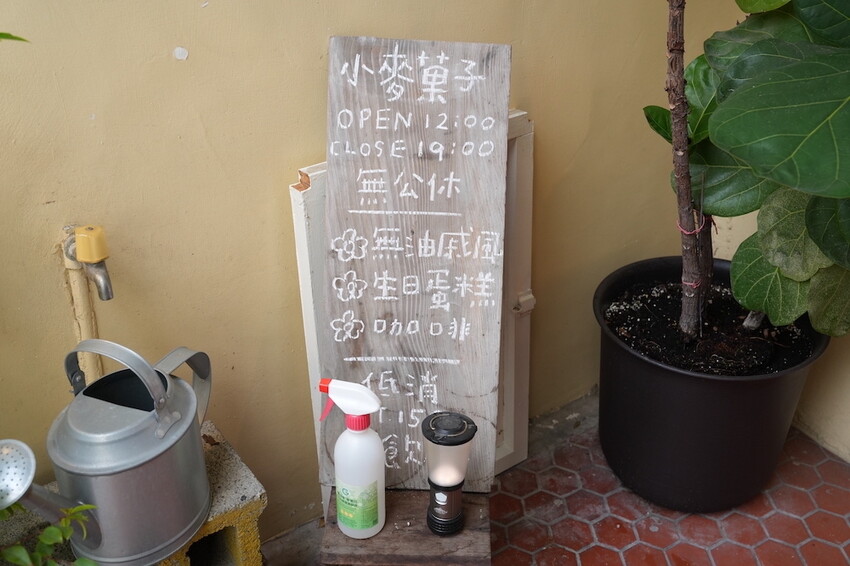 小麥菓子
OPEN 12:00
CLOSE 19:00
無公休
無油戚風
生日蛋糕
咖啡
低消
15